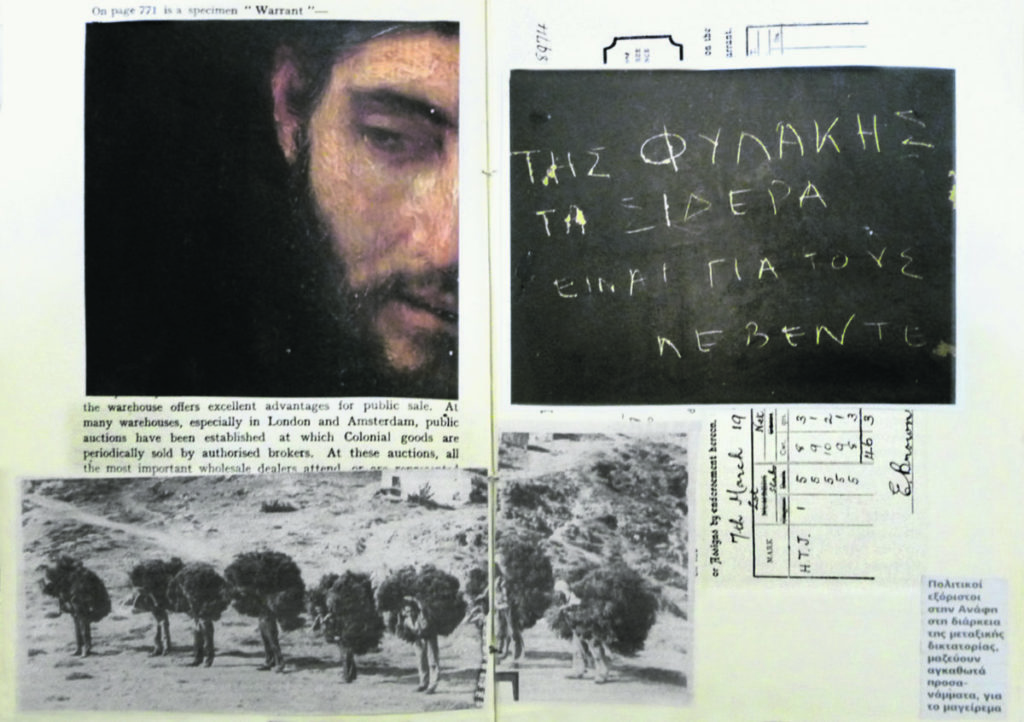 On page 771 is a specimen "Warrant"—
the warehouse offers excellent advantages for public sale. At
many warehouses, especially in London and Amsterdam, public
auctions have been established at which Colonial goods are
periodically sold by authorised brokers. At these auctions, all
the most important wholesale dealers attend, or are represented
on the
arrant.
ΤΗΣ ΦΥΛΑΚΗΣ
ΤΑ ΞΙΔΕΡΑ
ΕΙΝΑΙ ΓΙΑ ΤΟΥΣ
ΛΕΒΕΝΤΕ
or Assigns by endorsement hereon.
7th March 19
MARK
Net
H T J. 1
E Brown
Πολιτικοί
εξόριστοι
στην Ανάφη
στη διάρκεια
της μεταξικής
δικτατορίας,
μαζεύουν
αγκαθωτά
προσα-
νάμματα, για
το μαγείρεμα